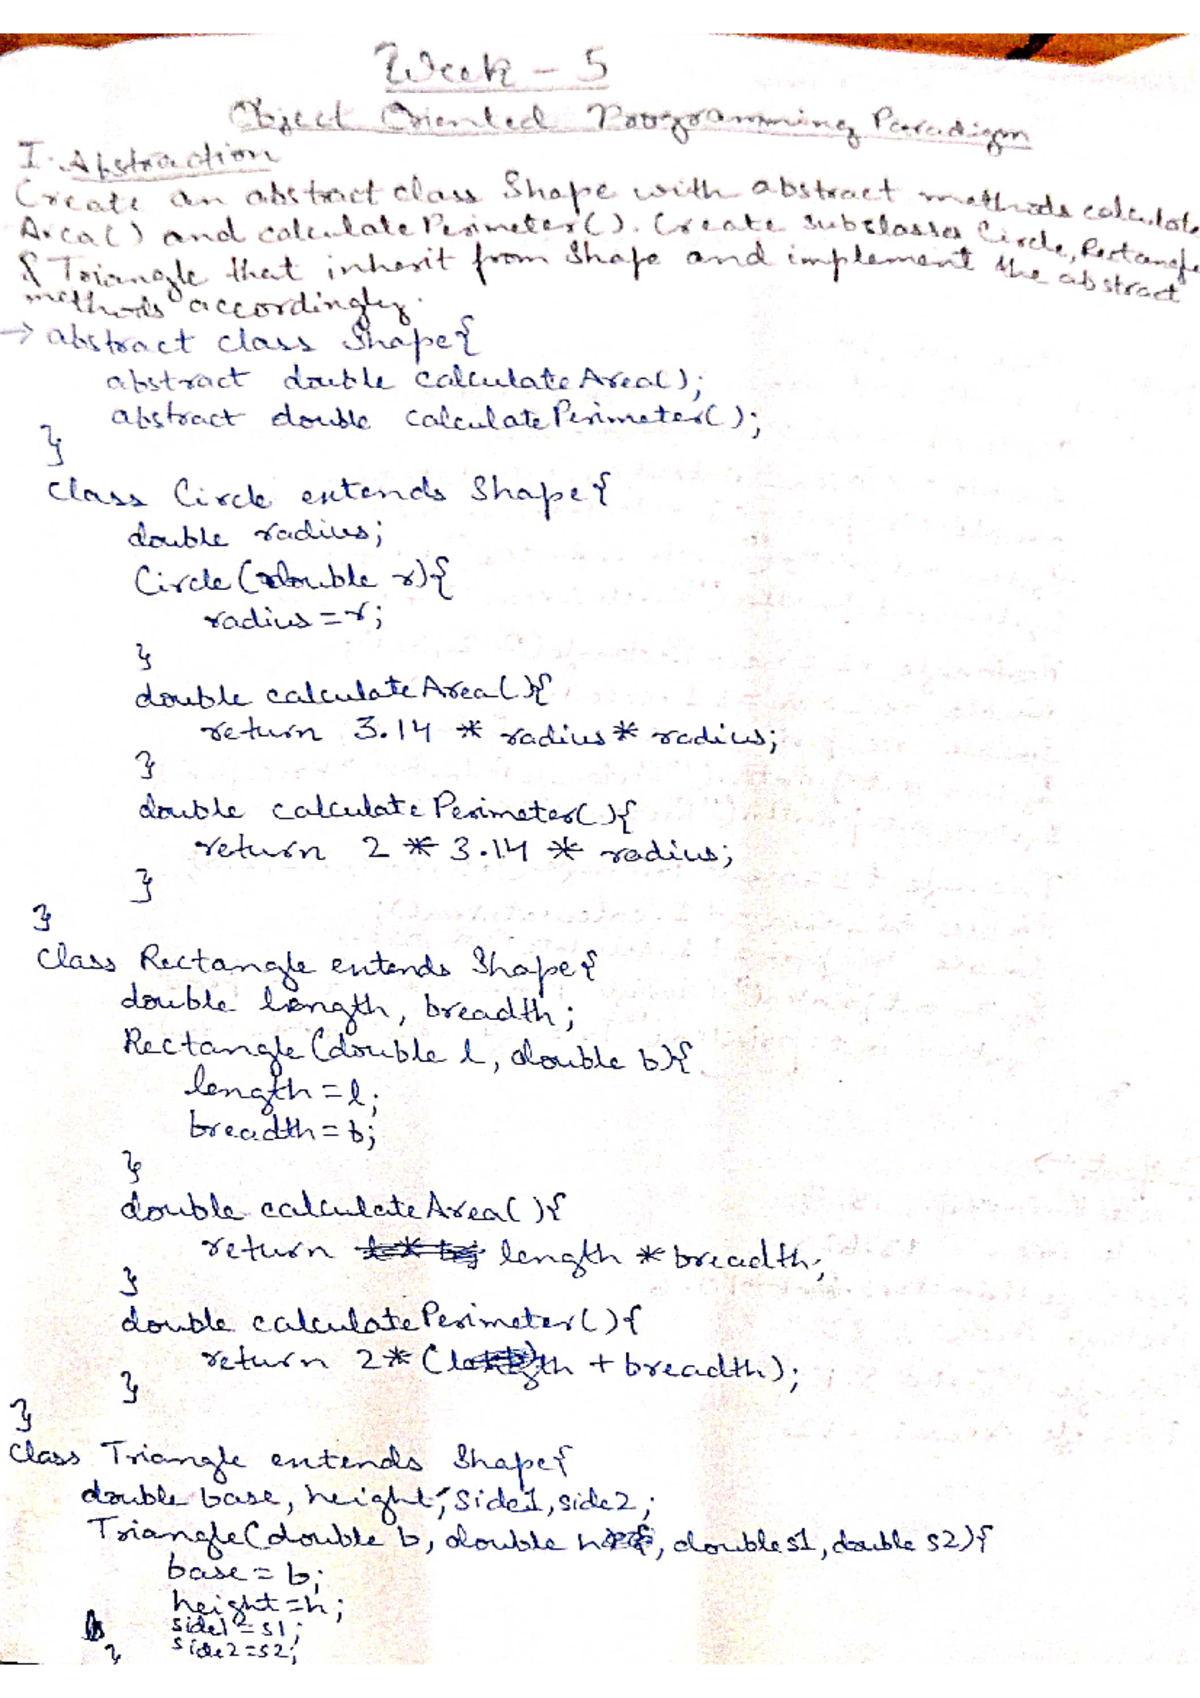 Week - 5
Object Oriented Programming Paradigm
I. Abstraction
Create an abstract class Shape with abstract methods calculate
Area() and calculatePerimeter(). Create subclasses Circle, Rectangle
& Triangle that inherit from Shape and implement the abstract
methods accordingly.
→ abstract class Shape{
abstract double calculateArea();
abstract double calculatePerimeter();
}
class Circle extends Shape{
double radius;
Circle(double r){
radius = r;
}
double calculateArea(){
return 3.14 * radius * radius;
}
double calculatePerimeter(){
return 2 * 3.14 * radius;
}
}
class Rectangle extends Shape{
double length, breadth;
Rectangle(double l, double b){
length = l;
breadth = b;
}
double calculateArea(){
return length * breadth;
}
double calculatePerimeter(){
return 2 * (length + breadth);
}
}
class Triangle extends Shape{
double base, height, side1, side2;
Triangle(double b, double h, double s1, double s2){
base = b;
height = h;
side1 = s1;
side2 = s2;
}